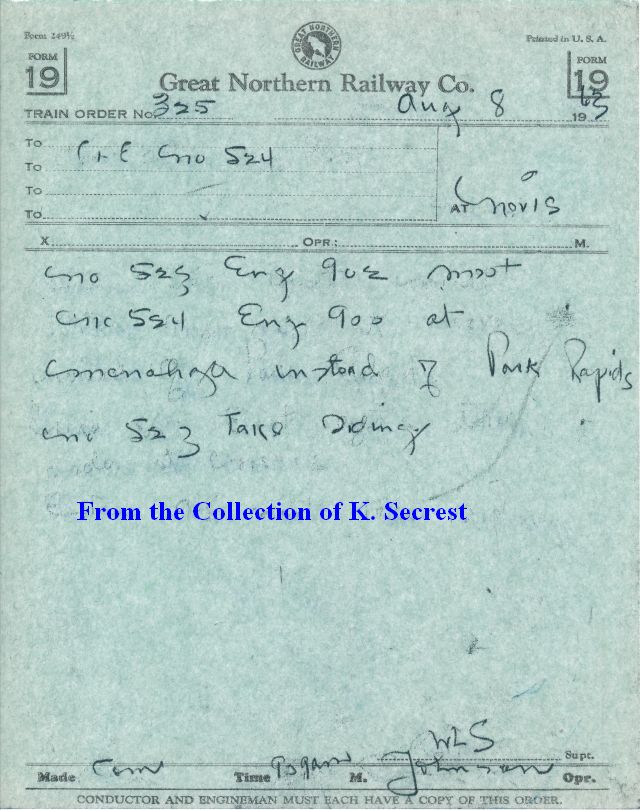 Form 249½
Printed in U. S. A.
GREAT NORTHERN RAILWAY
FORM 19
FORM 19
Great Northern Railway Co.
TRAIN ORDER No. 325 Aug 8 1943
To C&E No 524
To
To
To
AT Nevis
X OPR.: M.
No 523 Eng 902 meet
No 524 Eng 900 at
Menahga instead of Park Rapids
No 523 Take Siding
From the Collection of K. Secrest
WLS Supt.
Made Com Time M. Johnson Opr.
CONDUCTOR AND ENGINEMAN MUST EACH HAVE A COPY OF THIS ORDER.